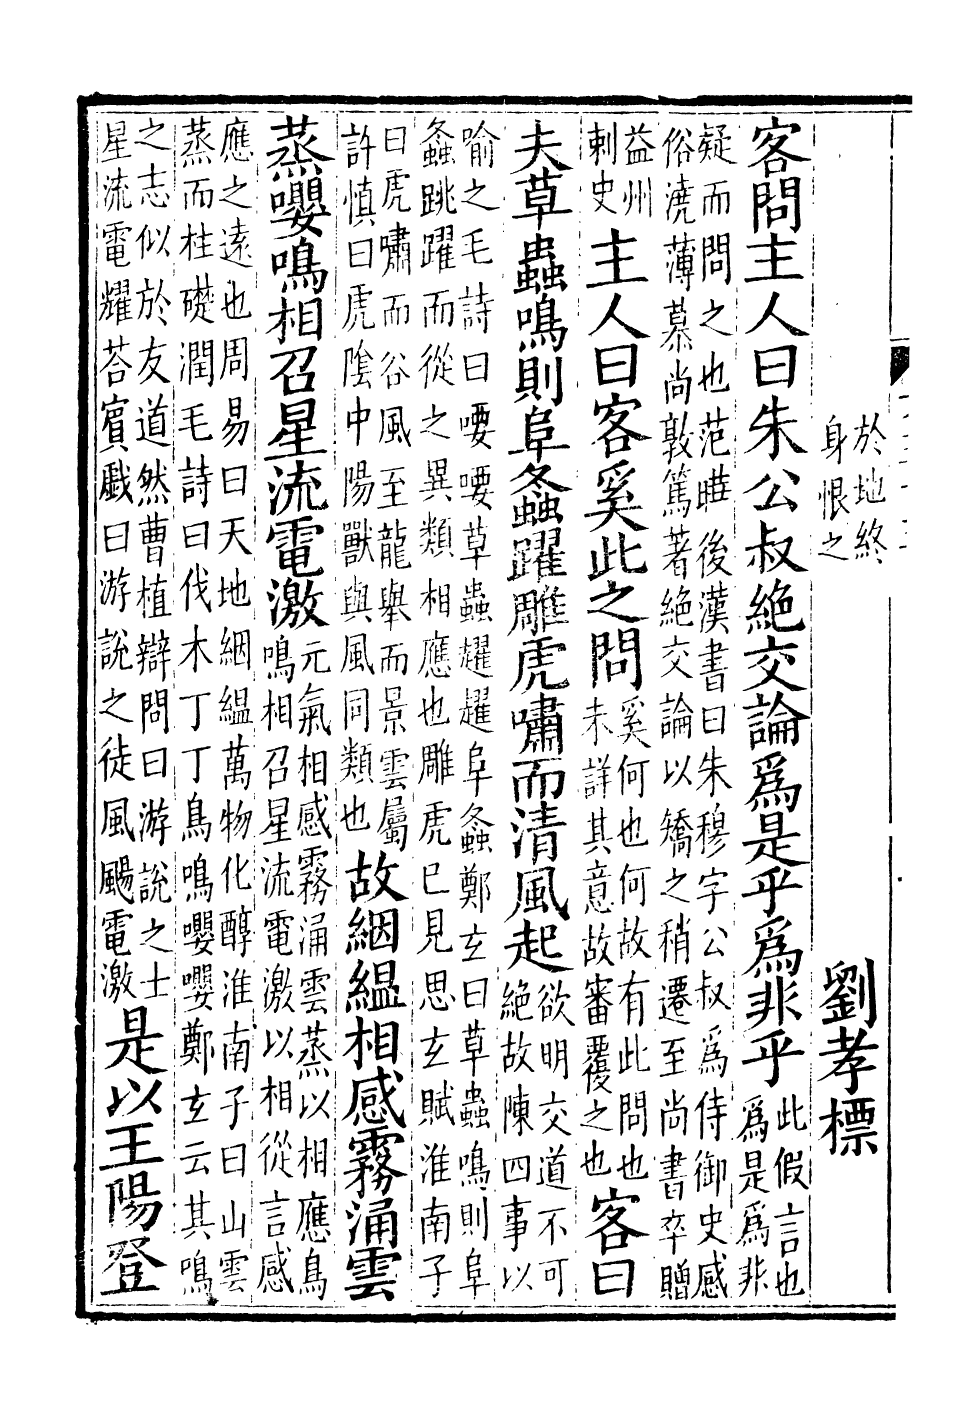 於地終
身恨之
劉孝標
客問主人曰朱公叔絶交論爲是乎爲非乎
此假言也
爲是爲非
疑而問之也范曄後漢書曰朱穆字公叔爲侍御史感
俗澆薄慕尚敦篤著絶交論以矯之稍遷至尚書卒贈
益州
刺史
主人曰客奚此之問
奚何也何故有此問也
未詳其意故審覆之也
客曰
夫草蟲鳴則阜螽躍雕虎嘯而清風起
欲明交道不可
絶故陳四事以
喻之毛詩曰喓喓草蟲趯趯阜螽鄭玄曰草蟲鳴則阜
螽跳躍而從之異類相應也雕虎已見思玄賦淮南子
曰虎嘯而谷風至龍舉而景雲屬
許慎曰虎陰中陽獸與風同類也
故絪緼相感霧涌雲
蒸嚶鳴相召星流電激
元氣相感霧涌雲蒸以相應鳥
鳴相召星流電激以相從言感
應之遠也周易曰天地絪緼萬物化醇淮南子曰山雲
蒸而柱礎潤毛詩曰伐木丁丁鳥鳴嚶嚶鄭玄云其鳴
之志似於友道然曹植辯問曰游說之士
星流電耀荅賓戲曰游說之徒風颺電激
是以王陽登